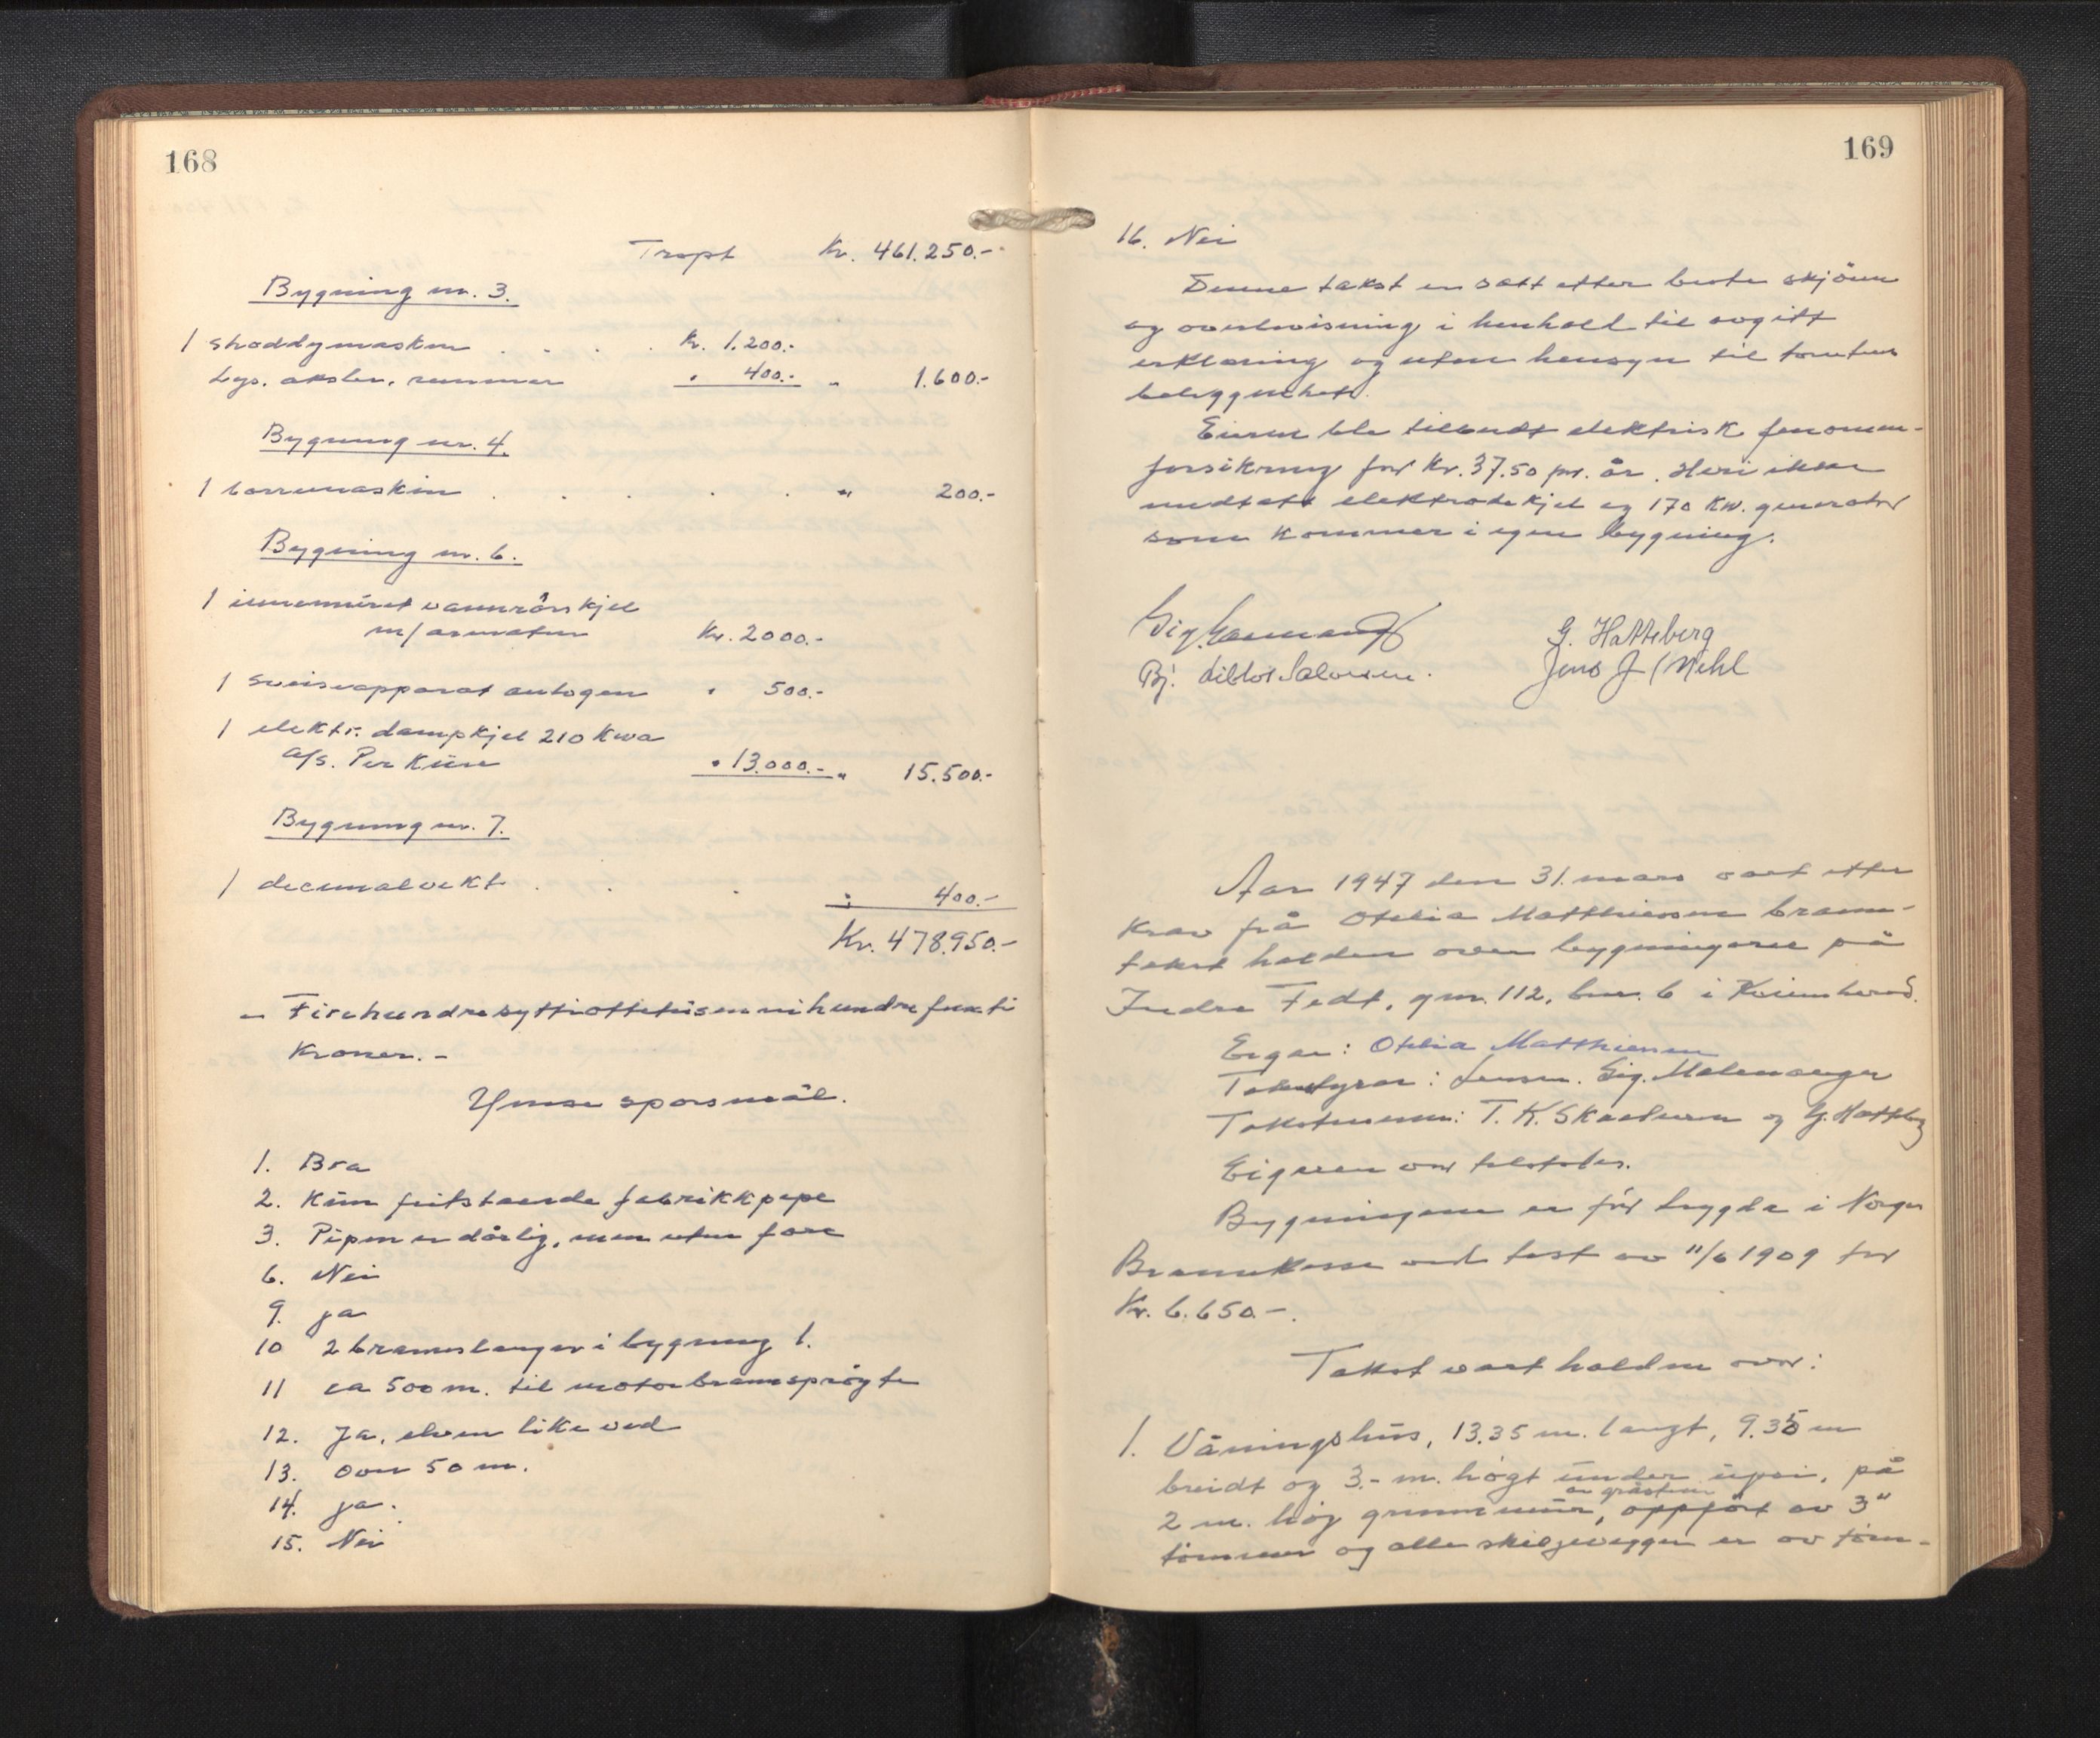 168
Trspt Kr. 461.250.-
Bygning nr. 3.
1 shoddymaskin . . . . Kr. 1.200.-
Lys. aksler, remmer " 400.- " 1.600.-
Bygning nr. 4.
1 borremaskin . . . . . " 200.-
Bygning nr. 6.
1 innemuret vannrörskjel
m/armatur Kr. 2000.-
1 sveiseapparat autogen " 500.-
1 elektr. dampkjel 210 Kwa
A/s. Per Kure " 13.000.- " 15.500.-
Bygning nr. 7.
1 decimalvekt . . . " 400.-
Kr. 478.950.-
- Firehundresyttiottetusennihundrefemti
Kroner. -
Ymse sporsmål.
1. Bra
2. Kun frittstaende fabrikkpipe
3. Pipen er dårlig, men uten fare
6. Nei
9. ja
10 2 brannslanger i bygning 1.
11 ca 500 m. til motorbrannspröyte
12. Ja, elven like ved
13. Over 50 m.
14. ja.
15. Nei
169
16. Nei
Denne takst er satt etter beste skjönn
og overbevisning i henhold til avgitt
erklæring og uten hensyn til tomtens
beliggenhet.
Eieren ble tilbudt elektrisk fenomen-
forsikring for Kr. 37.50 pr. år. Heri ikke
medtatt elektrodekjel og 170 Kw. generator
som kommer i egen bygning.
G. Hatteberg
Bj. Salvesen. Jens J. Mehl
Aar 1947 den 31. mars vart etter
krav frå Otelia Matthiessen brann-
takst halden over bygningane på
Indre Fedt, gnr. 112, bnr. 6 i Kvinnherad.
Eigar: Otelia Matthiessen
Takststyrar: Lensm. Sig. Malmanger
Takstmenn: T. K. Skaaluren og G. Hatteberg
Eigaren var tilstades.
Bygningane er för trygda i Norges
Brannkasse ved takst av 11/6 1909 for
Kr. 6.650.-.
Takst vart halden over:
1. Våningshus, 13.35 m. langt, 9.35 m
breidt og 3.- m. högt under upsi, på
av gråstein
2 m. höy grunnmur, oppfört av 3"
tömmer og alle skiljevegger er av töm-